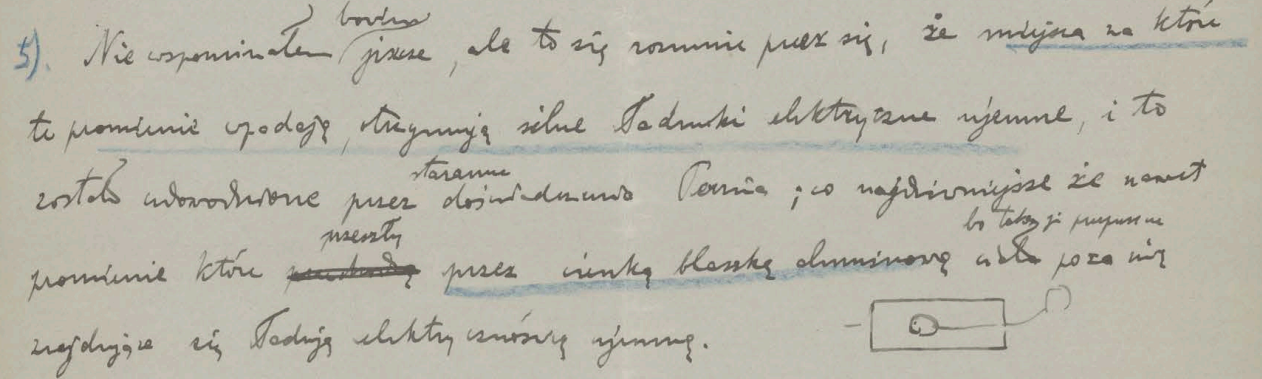 5). Nie wspominałem bowiem jeszcze, ale to się rozumie przez się, że miejsca na które
te promienie wpadają, otrzymują silne ładunki elektryczne ujemne, i to
zostało udowodnione przez staranne doświadczenia Perrina; co najdziwniejsze że nawet
promienie które przeszły przez cienką blaszkę aluminiową ciała poza nią
bo także je przepuszcza
znajdujące się ładują elektrycznością ujemną.